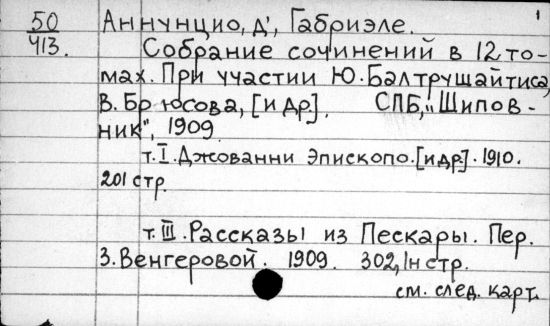 50
413.
1
Аннунцио, д', Габриэле.
Собрание сочинений в 12 то-
мах. При участии Ю. Балтрушайтиса,
В. Брюсова, [и др]. СПБ, „Шипов-
ник", 1909
т. I. Джованни Эпископо. [и др]. 1910.
201 стр.
т. III. Рассказы из Пескары. Пер.
З. Венгеровой. 1909. 302, 1н стр.
см. след. карт.